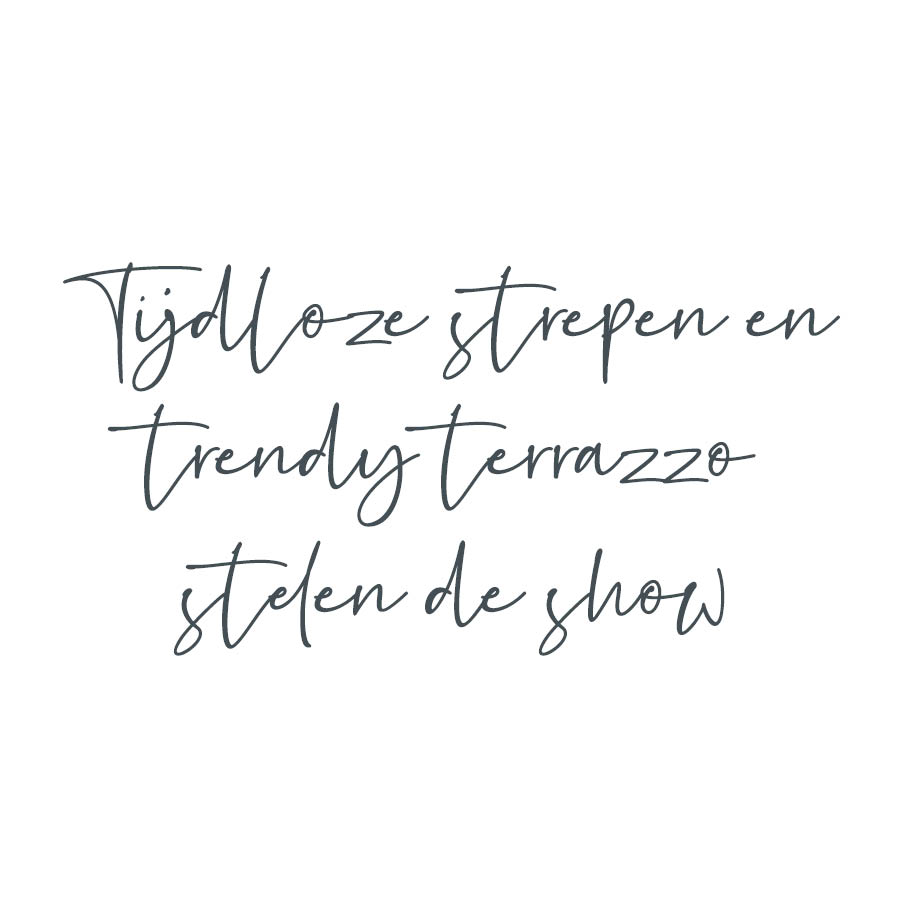 Tijdloze strepen en
trendy terrazzo
stelen de show